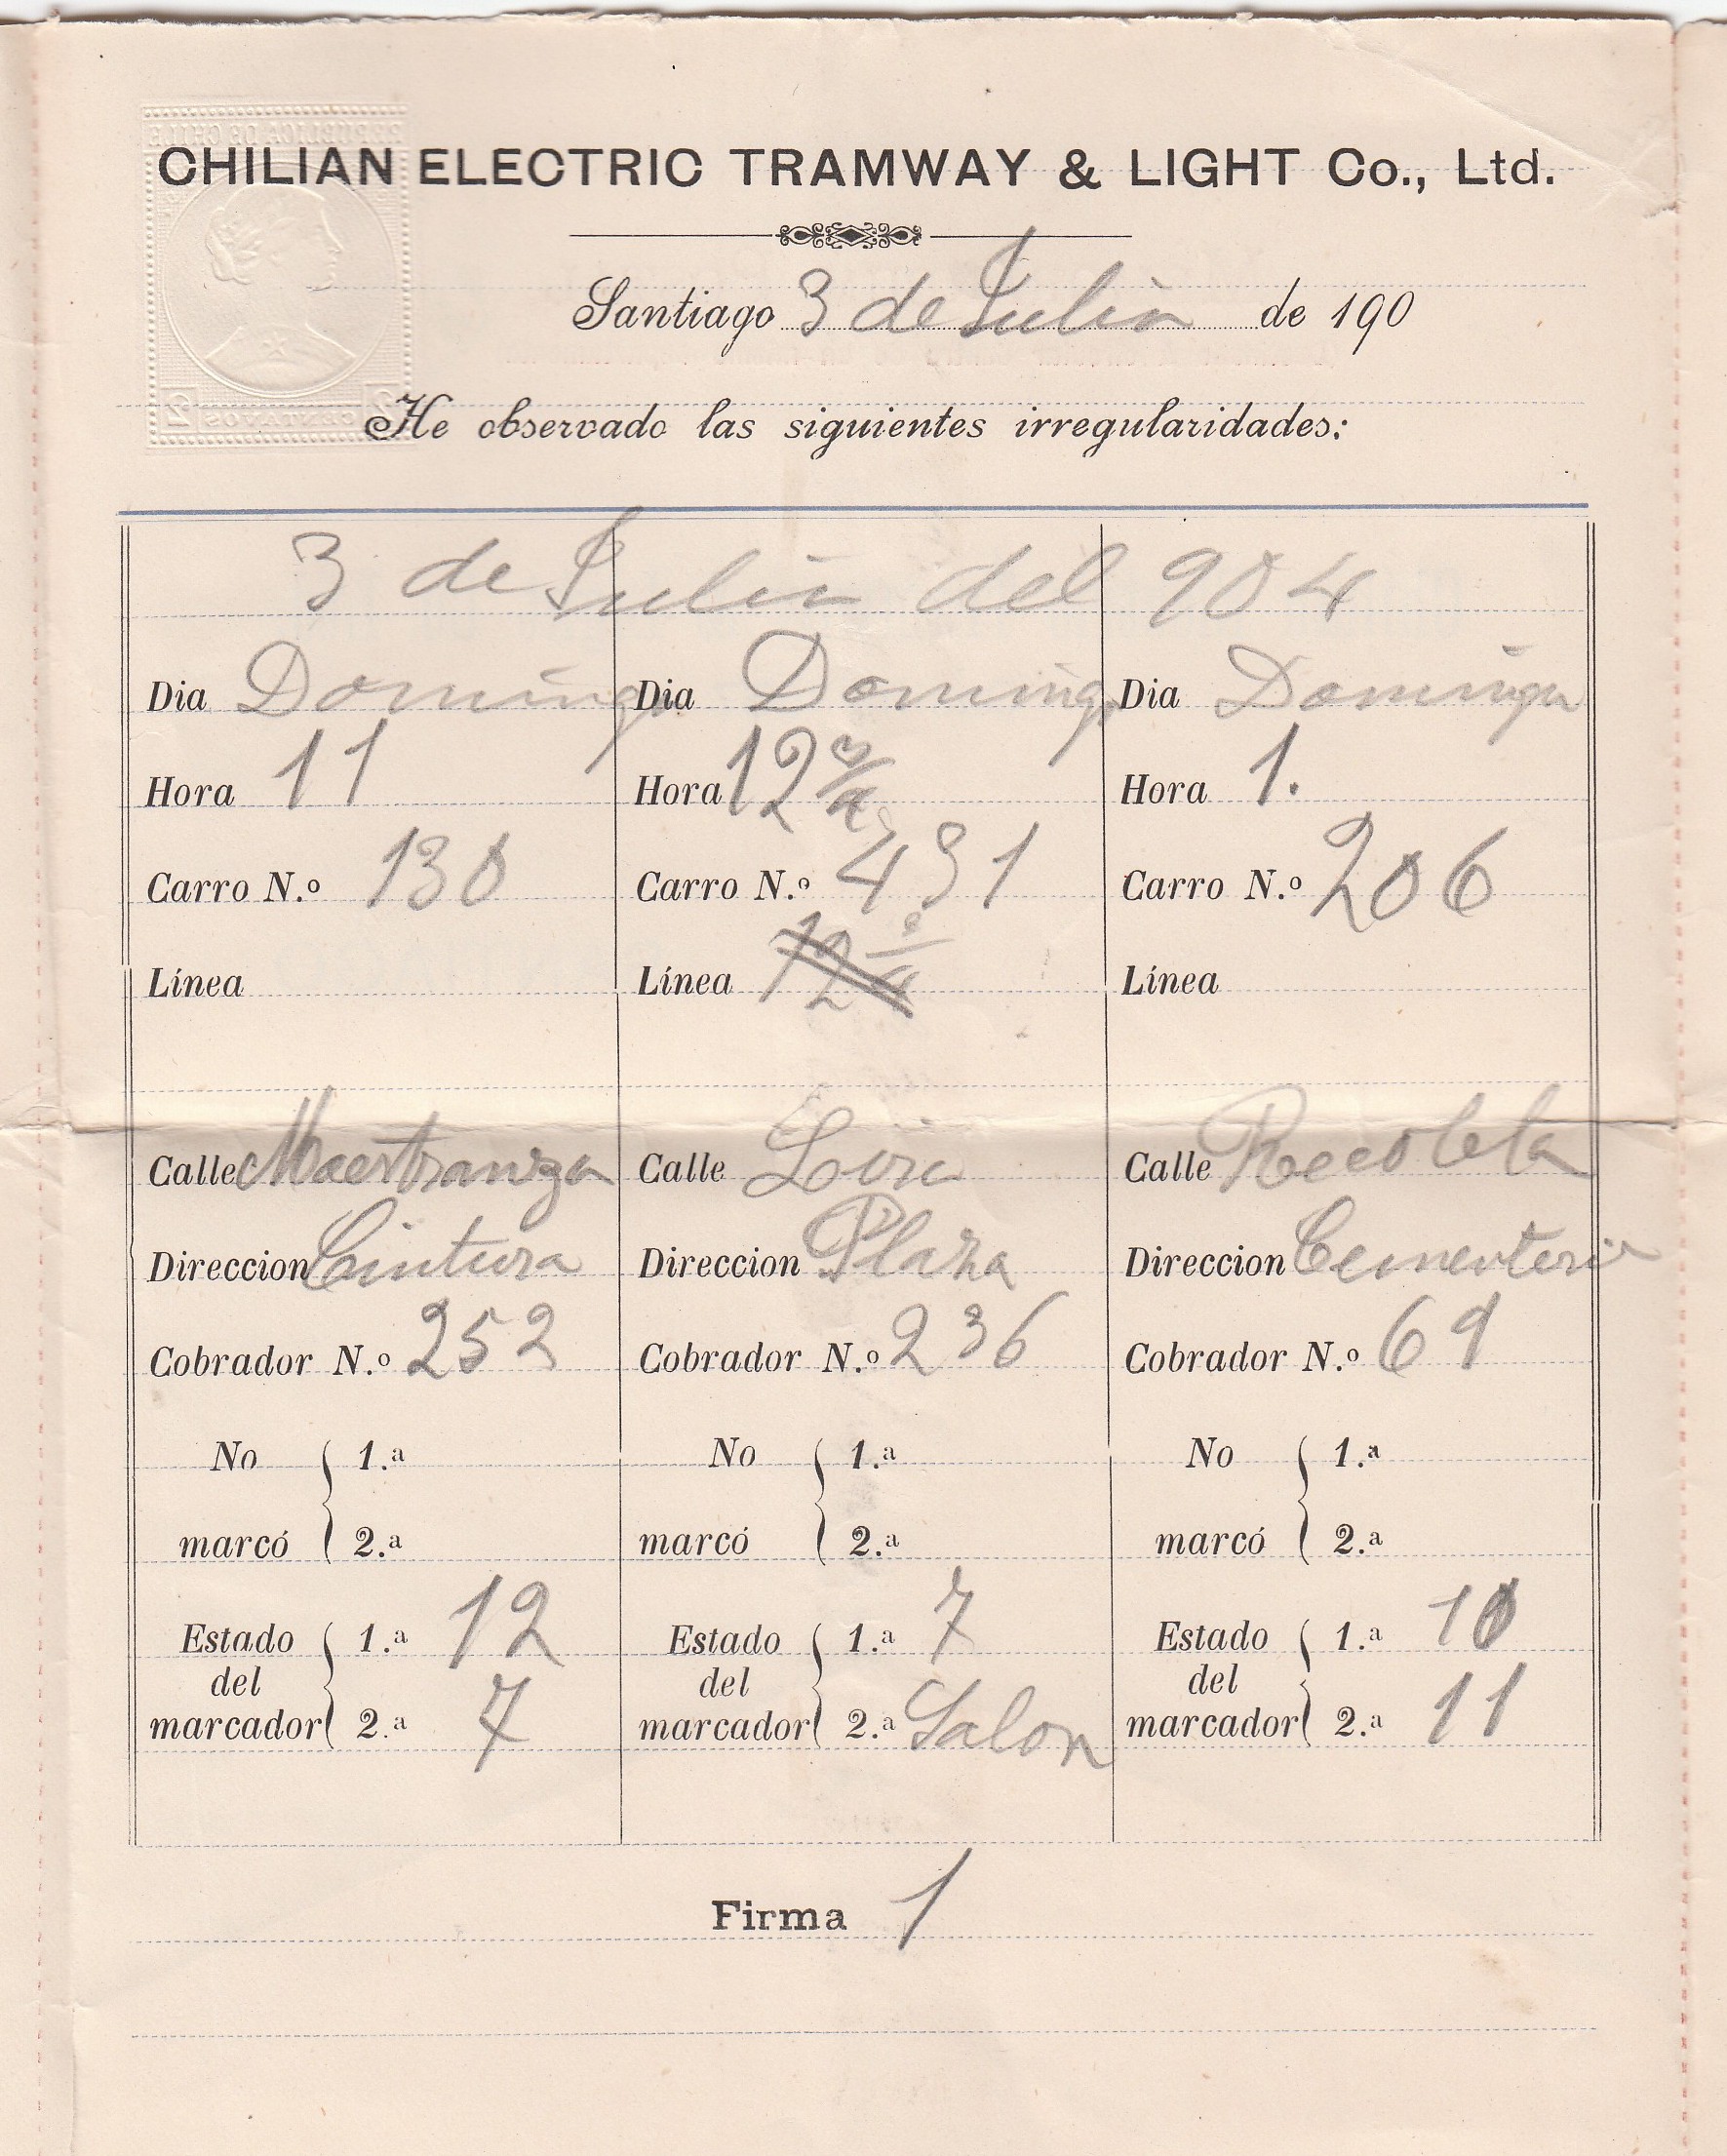 CHILIAN ELECTRIC TRAMWAY & LIGHT Co., Ltd.
Santiago 3 de Julio de 190
He observado las siguientes irregularidades:
3 de Julio del 904
Dia Domingo Dia Domingo Dia Domingo
Hora 11 Hora 12 3/4 Hora 1.
Carro N.º 130 Carro N.º 431 Carro N.º 206
Línea Línea Línea
Calle Maestranza Calle Lira Calle Recoleta
Direccion Cintura Direccion Plaza Direccion Cementerio
Cobrador N.º 252 Cobrador N.º 236 Cobrador N.º 69
No 1.ª No 1.ª No 1.ª
marcó 2.ª marcó 2.ª marcó 2.ª
Estado 1.ª 12 Estado 1.ª 7 Estado 1.ª 10
del del del
marcador 2.ª 7 marcador 2.ª Salon marcador 2.ª 11
Firma 1